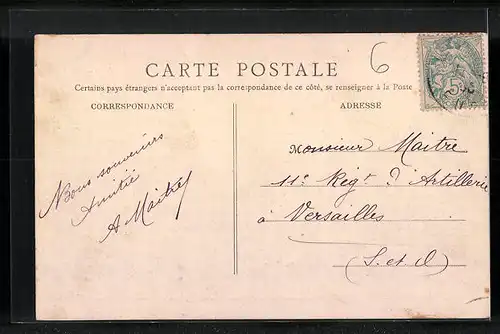 CARTE POSTALE
6
Certains pays étrangers n'acceptant pas la correspondance de ce côté, se renseigner à la Poste
CORRESPONDANCE
Bons souvenirs
Amitié
A Maitre
ADRESSE
Monsieur Maitre
11e Regt d'Artillerie
à Versailles
(S. et O)
5